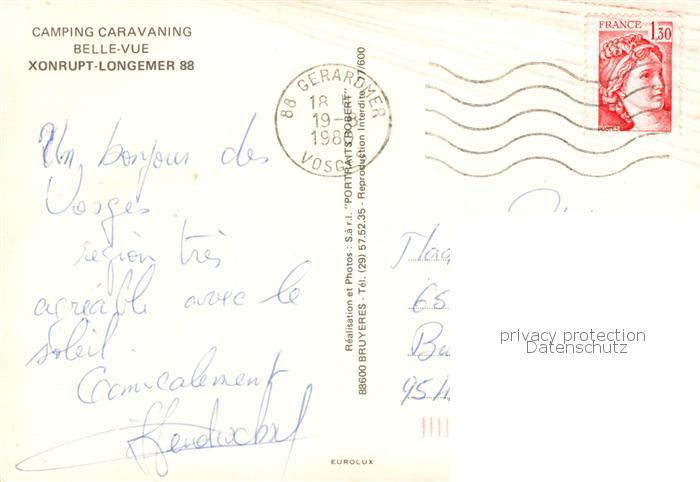 CAMPING CARAVANING
BELLE-VUE
XONRUPT-LONGEMER 88
FRANCE
1,30
POSTES
88 GERARDMER
18
19-
198
VOSGES
Un bonjour des
Vosges
région très
agréable avec le
soleil.
Réalisation et Photos : S.à r.l. "PORTRAITS ROBERT"
88600 BRUYERES - Tél. (29) 57.52.35 - Reproduction Interdite 77/600
65
Bu
95
privacy protection
Datenschutz
EUROLUX